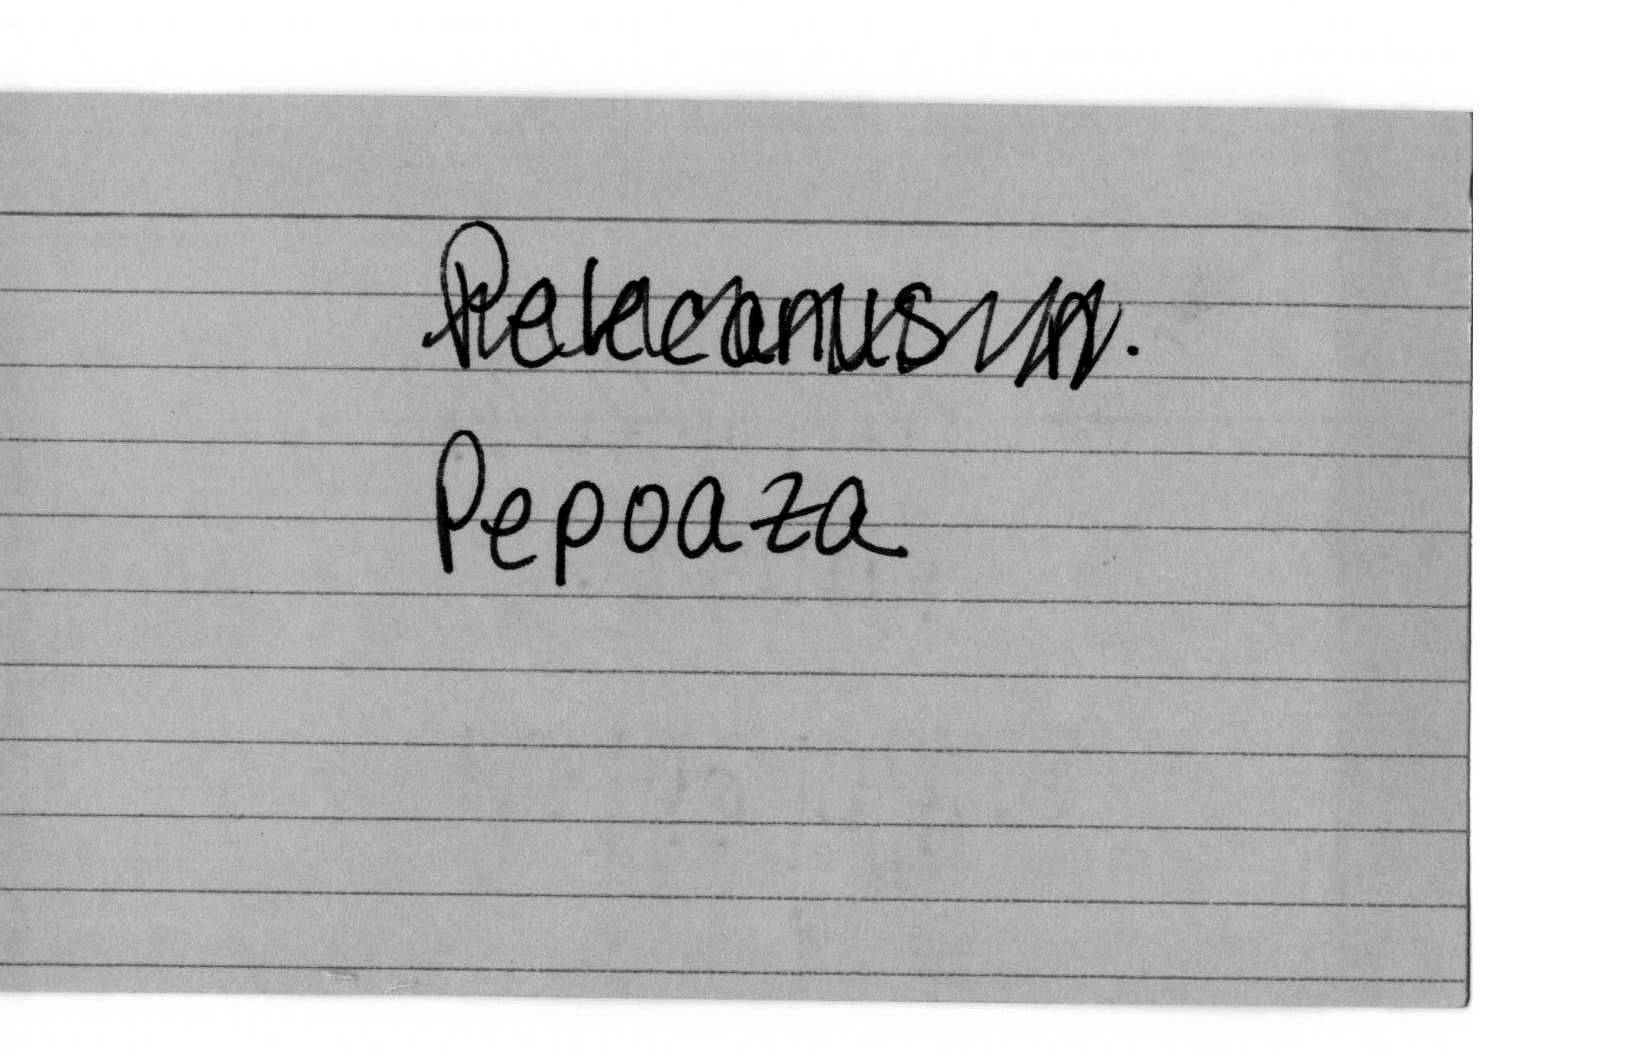 Pelecanus
Pepoaza